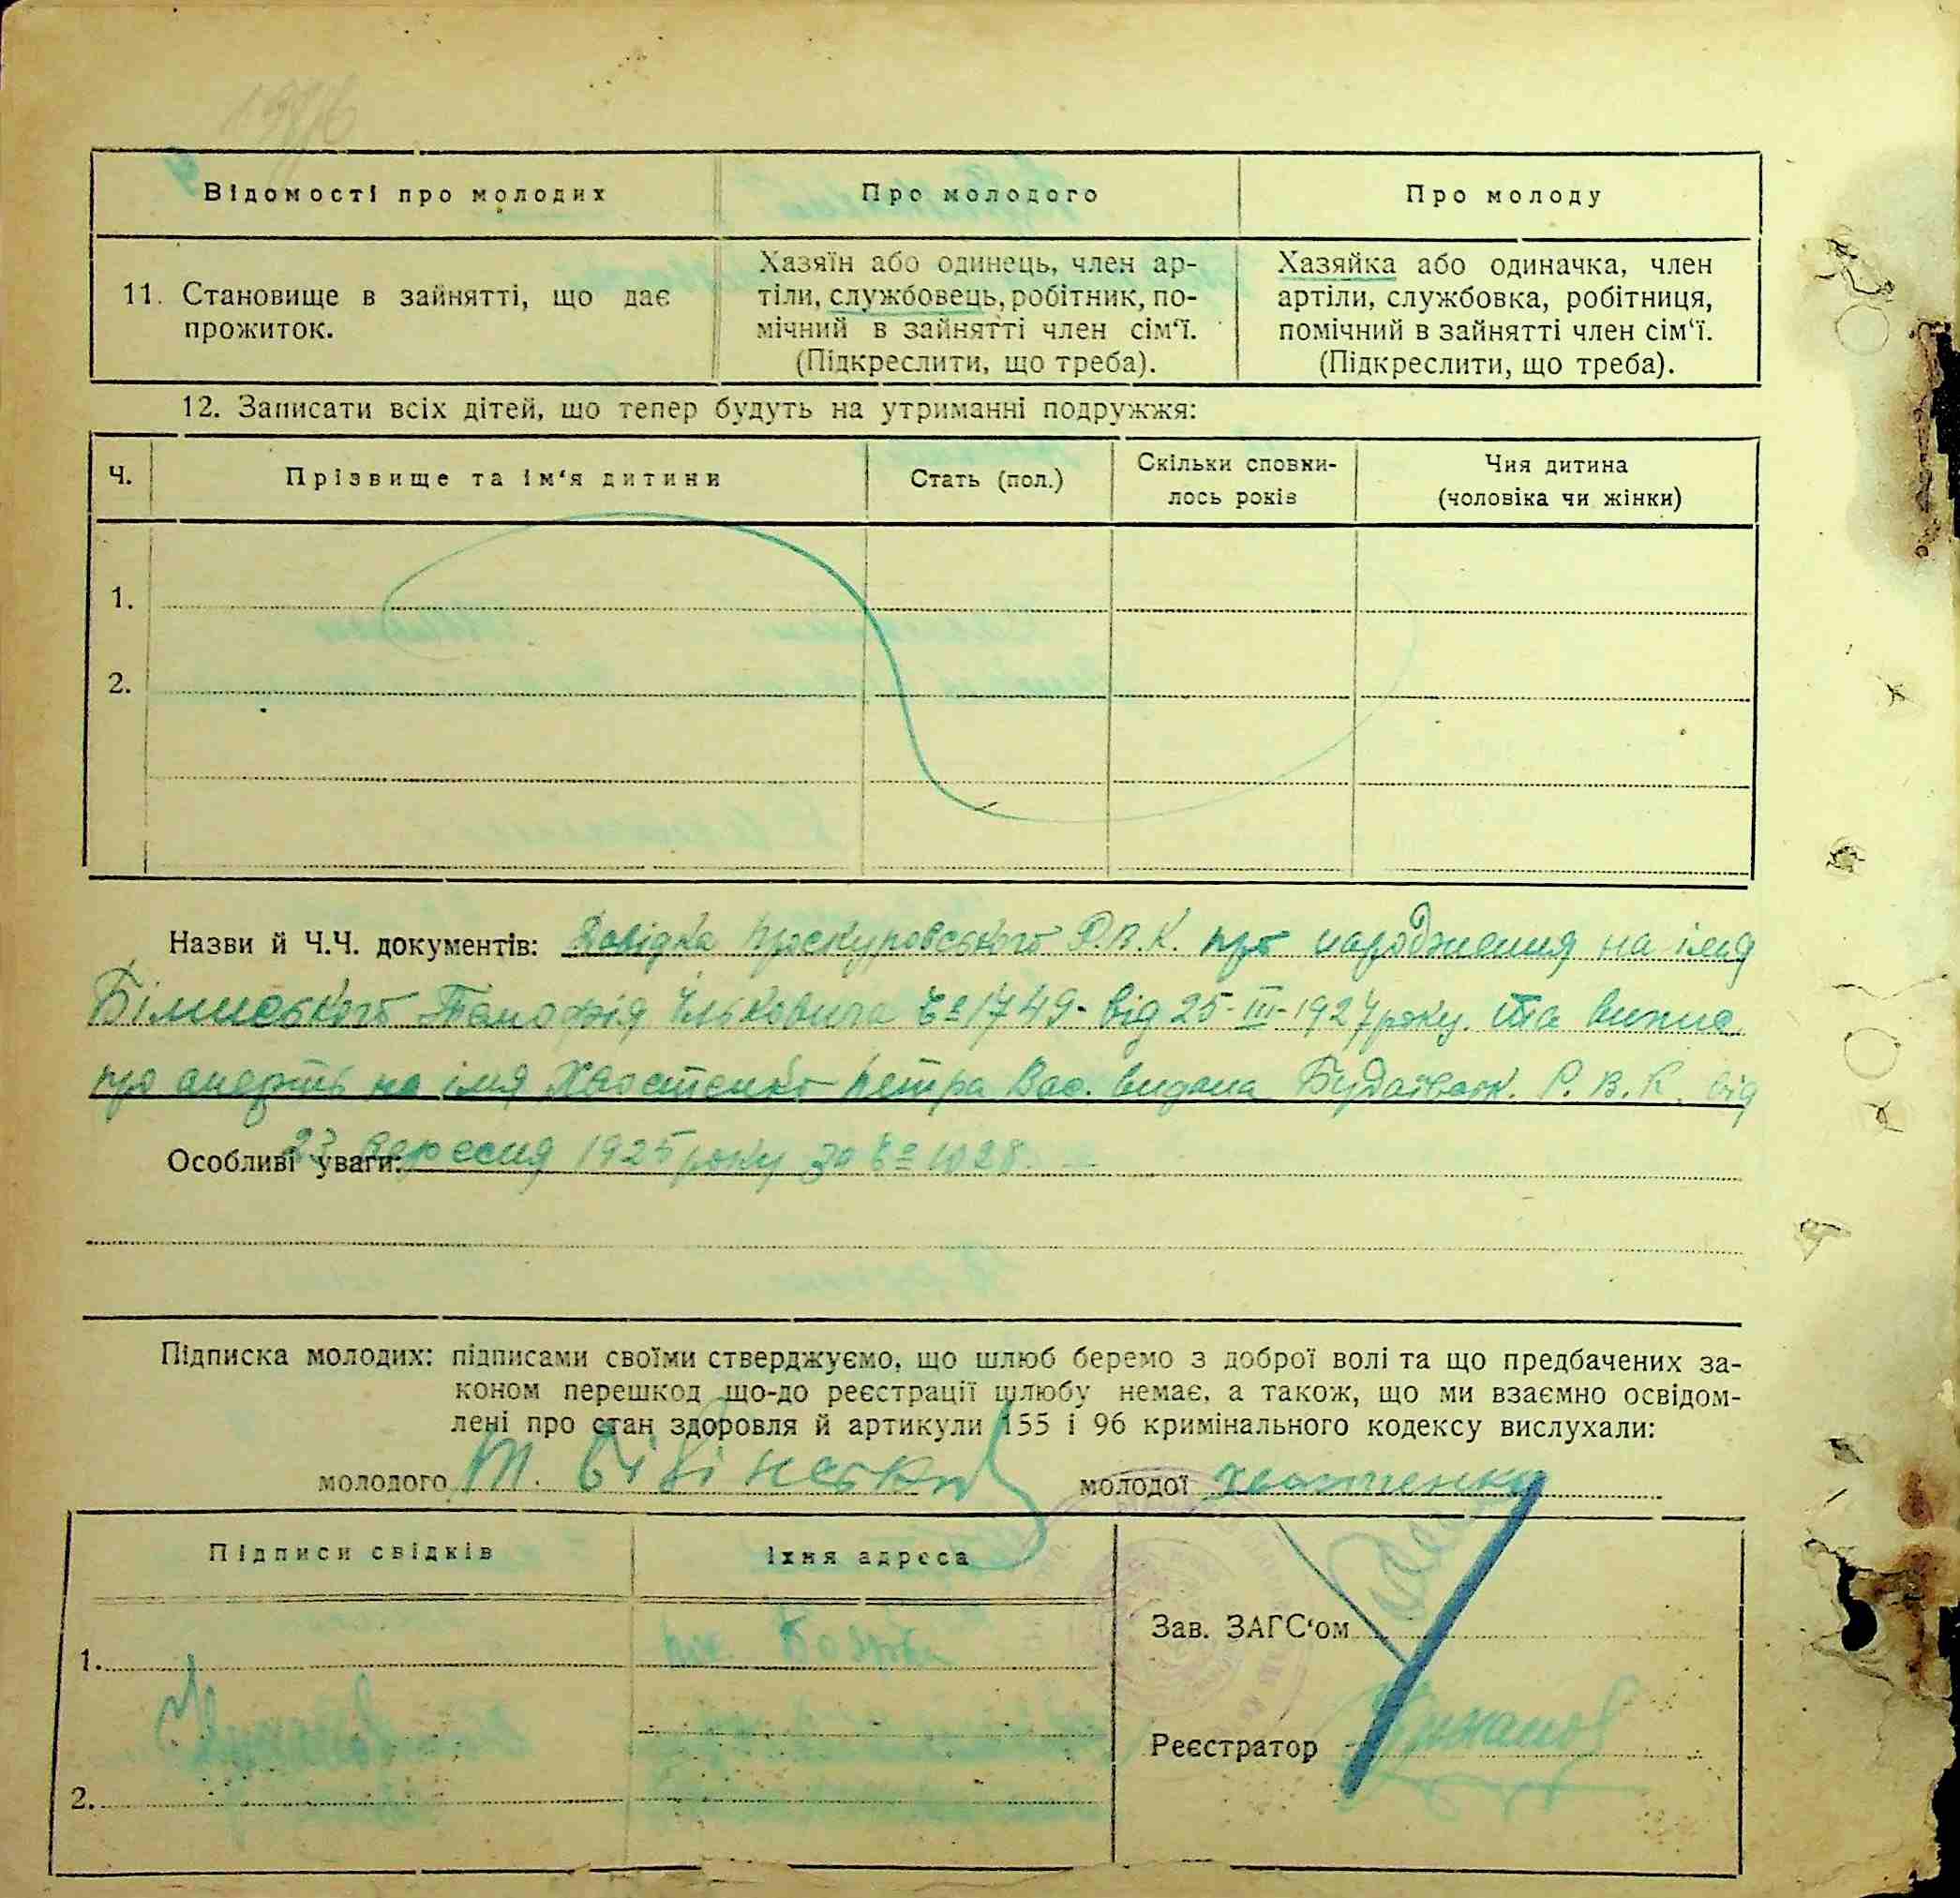 Відомості про молодих
Про молодого
Про молоду
11. Становище в зайнятті, що дає
прожиток.
Хазяїн або одинець, член ар-
тіли, службовець, робітник, по-
мічний в зайнятті член сім‘ї.
(Підкреслити, що треба).
Хазяйка або одиначка, член
артіли, службовка, робітниця,
помічний в зайнятті член сім‘ї.
(Підкреслити, що треба).
12. Записати всіх дітей, що тепер будуть на утриманні подружжя:
Ч.
Прізвище та ім‘я дитини
Стать (пол.)
Скільки сповни-
лось років
Чия дитина
(чоловіка чи жінки)
1.
2.
Назви й Ч.Ч. документів: Довідка Проскуровського Р.В.К. про народження на імя
Ільковича 1749 від 25-III-1927 року. та
про смерть на імя Хвостенко Петра Вас. видана Р. В. К. від
23 вересня 1925 року за 1028.
Особливі уваги:
Підписка молодих: підписами своїми стверджуємо, що шлюб беремо з доброї волі та що предбачених за-
коном перешкод що-до реєстрації шлюбу немає, а також, що ми взаємно освідом-
лені про стан здоровля й артикули 155 і 96 кримінального кодексу вислухали:
молодого Т.
молодої Хвостенко
Підписи свідків
Їхня адреса
1.
2.
Зав. ЗАГС‘ом
Реєстратор